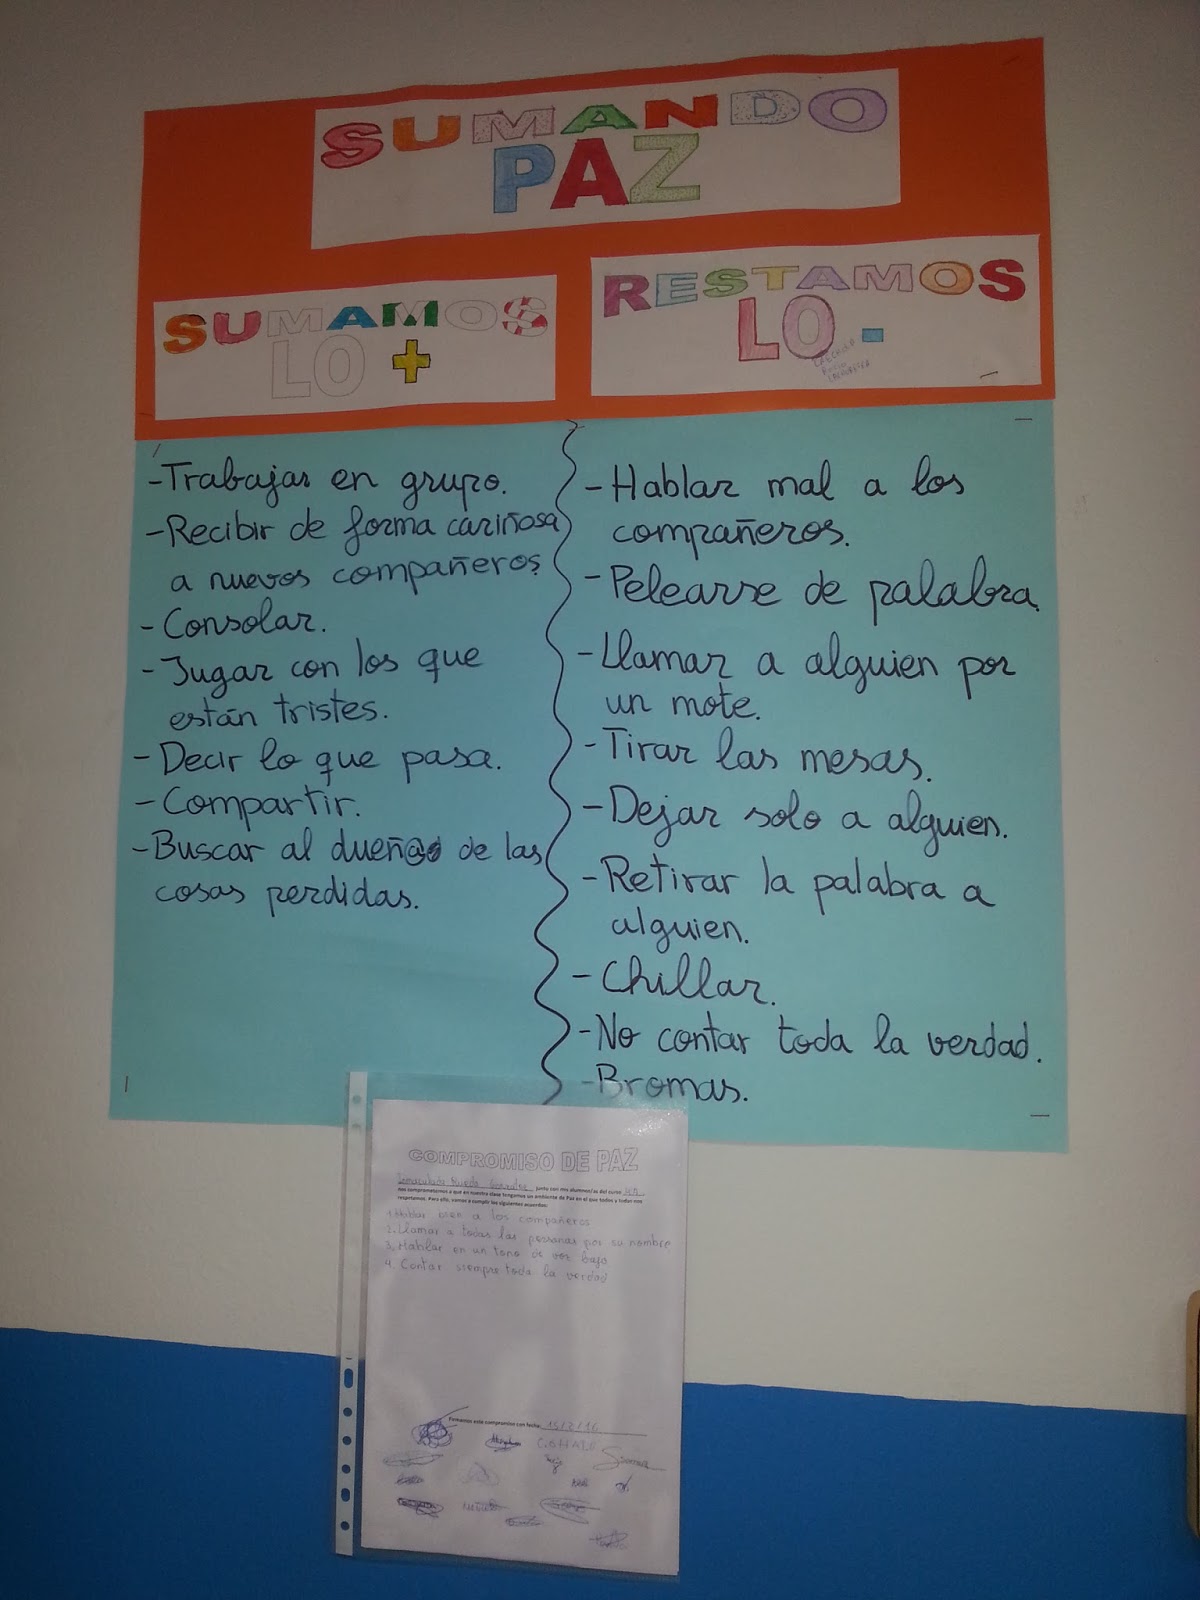 SUMANDO
PAZ
SUMAMOS
LO +
RESTAMOS
LO -
-Trabajar en grupo.
-Recibir de forma cariñosa
a nuevos compañeros.
-Consolar.
-Jugar con los que
están tristes.
-Decir lo que pasa.
-Compartir.
-Buscar al dueñ@ de las
cosas perdidas.
-Hablar mal a los
compañeros.
-Pelearse de palabra.
-Llamar a alguien por
un mote.
-Tirar las mesas.
-Dejar solo a alguien.
-Retirar la palabra a
alguien.
-Chillar.
-No contar toda la verdad.
-Bromas.
COMPROMISO DE PAZ
junto con mis alumnos/as del curso
nos comprometemos a que en nuestra clase tengamos un ambiente de Paz en el que todos y todas nos
respetemos. Para ello, vamos a cumplir los siguientes acuerdos:
1. Hablar bien a los compañeros
2. Llamar a todas las personas por su nombre
3. Hablar en un tono de voz bajo
4. Contar siempre toda la verdad
Firmamos este compromiso con fecha: 15/2/16